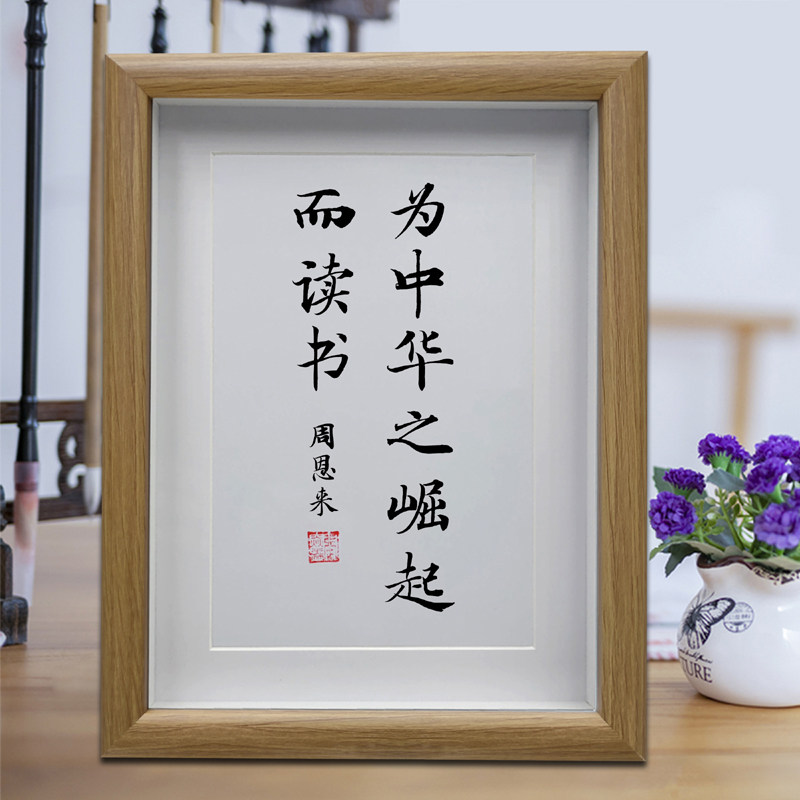 为中华之崛起
而读书
周恩来
TURE